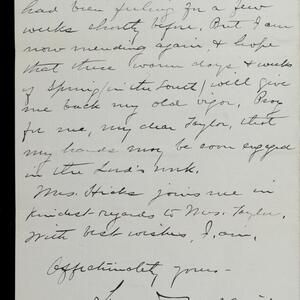 had been feeling for a few
weeks shortly before. But I am
now mending again, & hope
that these warm days & weeks
of Spring (in the South) will give
me back my old vigor. Pray
for me, my dear Taylor, that
my hands may be soon engaged
in the Lord's work.
Mrs. Hicks joins me in
kindest regards to Mrs. Taylor.
With best wishes, I am,
Affectionately yours—